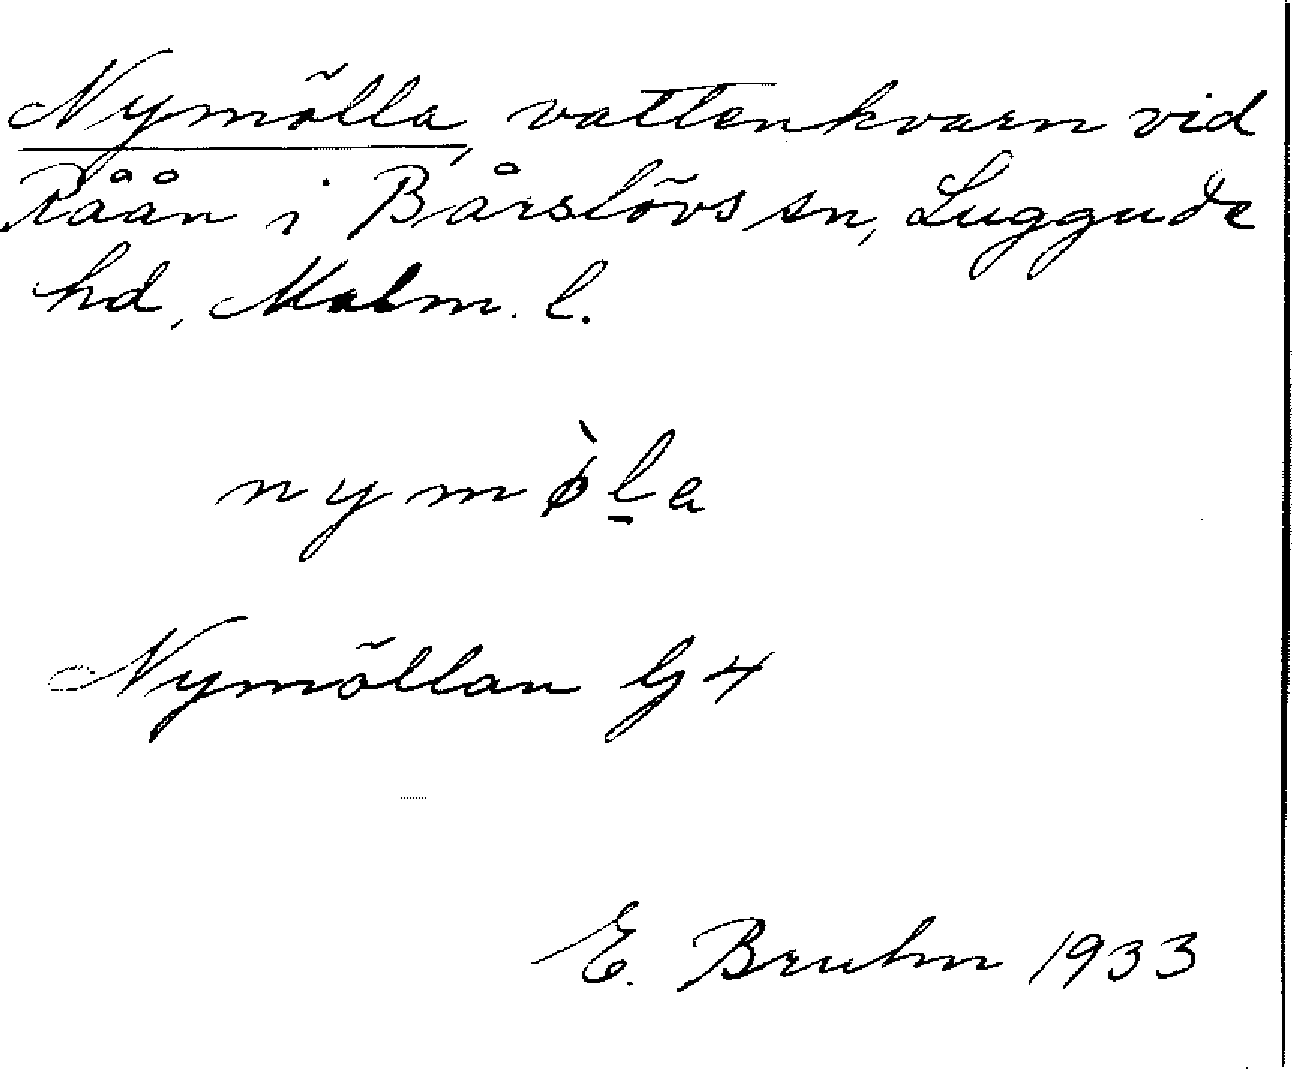 Nymölla, vattenkvarn vid
Råån i Bårslövs sn, Luggude
hd, Malm. l.
nymø̀ḻa
Nymöllan G4
E. Bruhn 1933